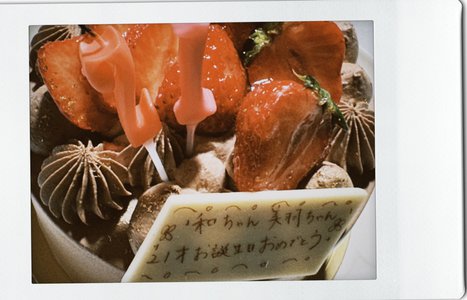 和ちゃん 美羽ちゃん
21才お誕生日おめでとう。